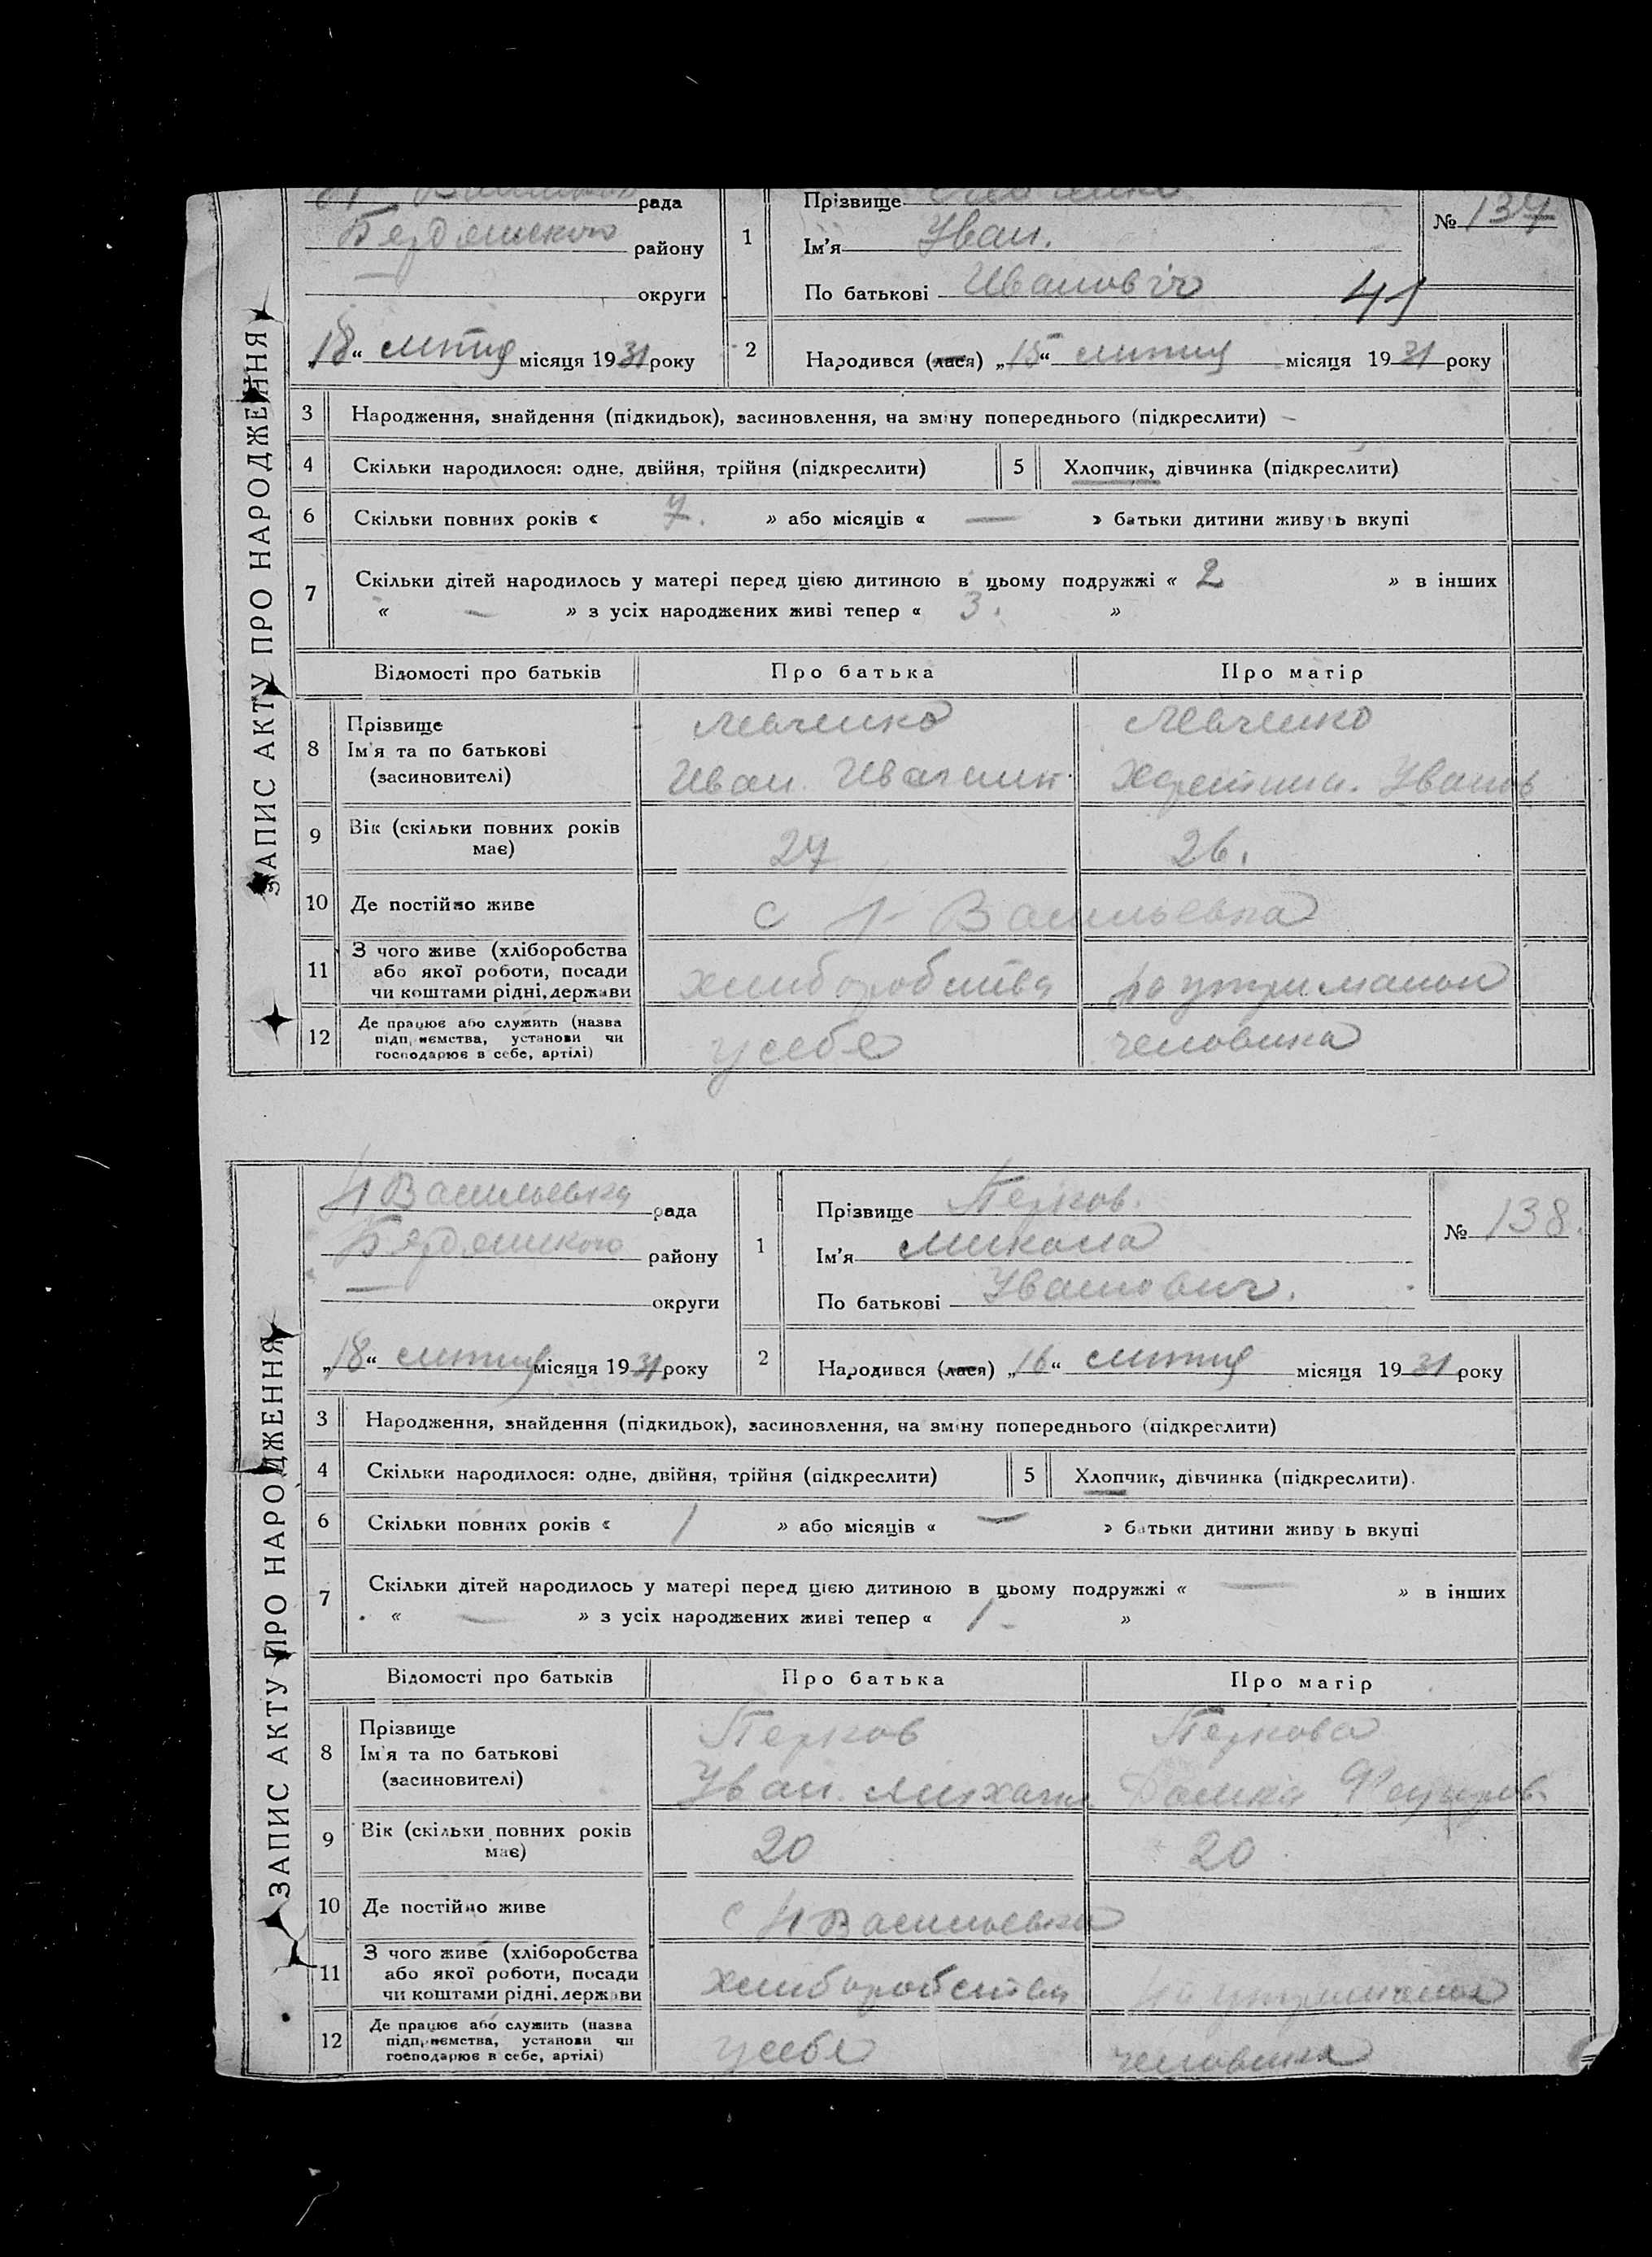 ЗАПИС АКТУ ПРО НАРОДЖЕННЯ
рада
Бердянського району
округи
„18“ лютня місяця 1931 року
1
Прізвище
Ім'я Уван.
По батькові Ивановіч
№ 137
41
2 Народився (лася) „15“ лютня місяця 1931 року
3 Народження, знайдення (підкидьок), засиновлення, на зміну попереднього (підкреслити) —
4 Скільки народилося: одне, двійня, трійня (підкреслити) 5 Хлопчик, дівчинка (підкреслити)
6 Скільки повних років « 7. » або місяців « — » батьки дитини живуть вкупі
7 Скільки дітей народилось у матері перед цією дитиною в цьому подружжі « 2 » в інших
« — » з усіх народжених живі тепер « 3. »
Відомості про батьків Про батька Про матір
8 Прізвище
Ім'я та по батькові
(засиновителі)
Левченко
Иван.
Левченко
Уванов
9 Вік (скільки повних років має) 27 26.
10 Де постійно живе с Васильевка
11 З чого живе (хліборобства або якої роботи, посади чи коштами рідні, держави
хлиборобства
12 Де працює або служить (назва підприємства, установи чи господарює в себе, артілі)
у себе
человика
ЗАПИС АКТУ ПРО НАРОДЖЕННЯ
Н Васильевка рада
Бердянського району
— округи
„18“ лютня місяця 1931 року
1
Прізвище Перков.
Ім'я Микола
По батькові Уванович.
№ 138.
2 Народився (лася) „16“ лютня місяця 1931 року
3 Народження, знайдення (підкидьок), засиновлення, на зміну попереднього (підкреслити)
4 Скільки народилося: одне, двійня, трійня (підкреслити) 5 Хлопчик, дівчинка (підкреслити).
6 Скільки повних років « 1 » або місяців « — » батьки дитини живуть вкупі
7 Скільки дітей народилось у матері перед цією дитиною в цьому подружжі « — » в інших
« — » з усіх народжених живі тепер « 1 »
Відомості про батьків Про батька Про матір
8 Прізвище
Ім'я та по батькові
(засиновителі)
Перков
Уван. Михаил.
Перкова
9 Вік (скільки повних років має) 20 20
10 Де постійно живе с Н Васильевка
11 З чого живе (хліборобства або якої роботи, посади чи коштами рідні, держави
хлиборобства
12 Де працює або служить (назва підприємства, установи чи господарює в себе, артілі)
у себе
человика